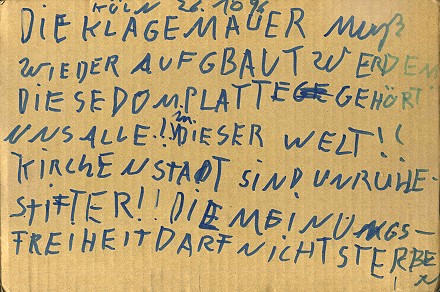 KÖLN 26.10 96
DIE KLAGEMAUER muß
WIEDER AUFGBAUT WERDEN
DIESE DOMPLATTE GEHÖRT
UNS ALLE!! in DIESER WELT!!
KIRCHEN STADT SIND UNRUHE-
STIFTER!! DIE MEINUNGS-
FREIHEIT DARF NICHT STERBEN